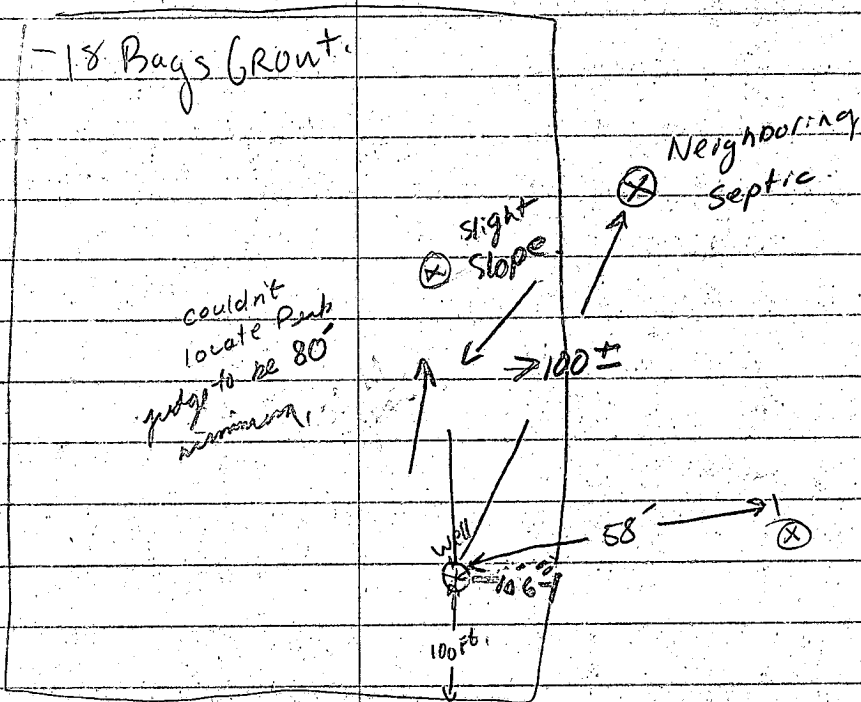 -18 Bags Grout.
Neighboring
septic.
slight
slope
couldn't
locate
judge to be 80'
minimum.
>100 ±
58'
well
10'6"
100 Ft.